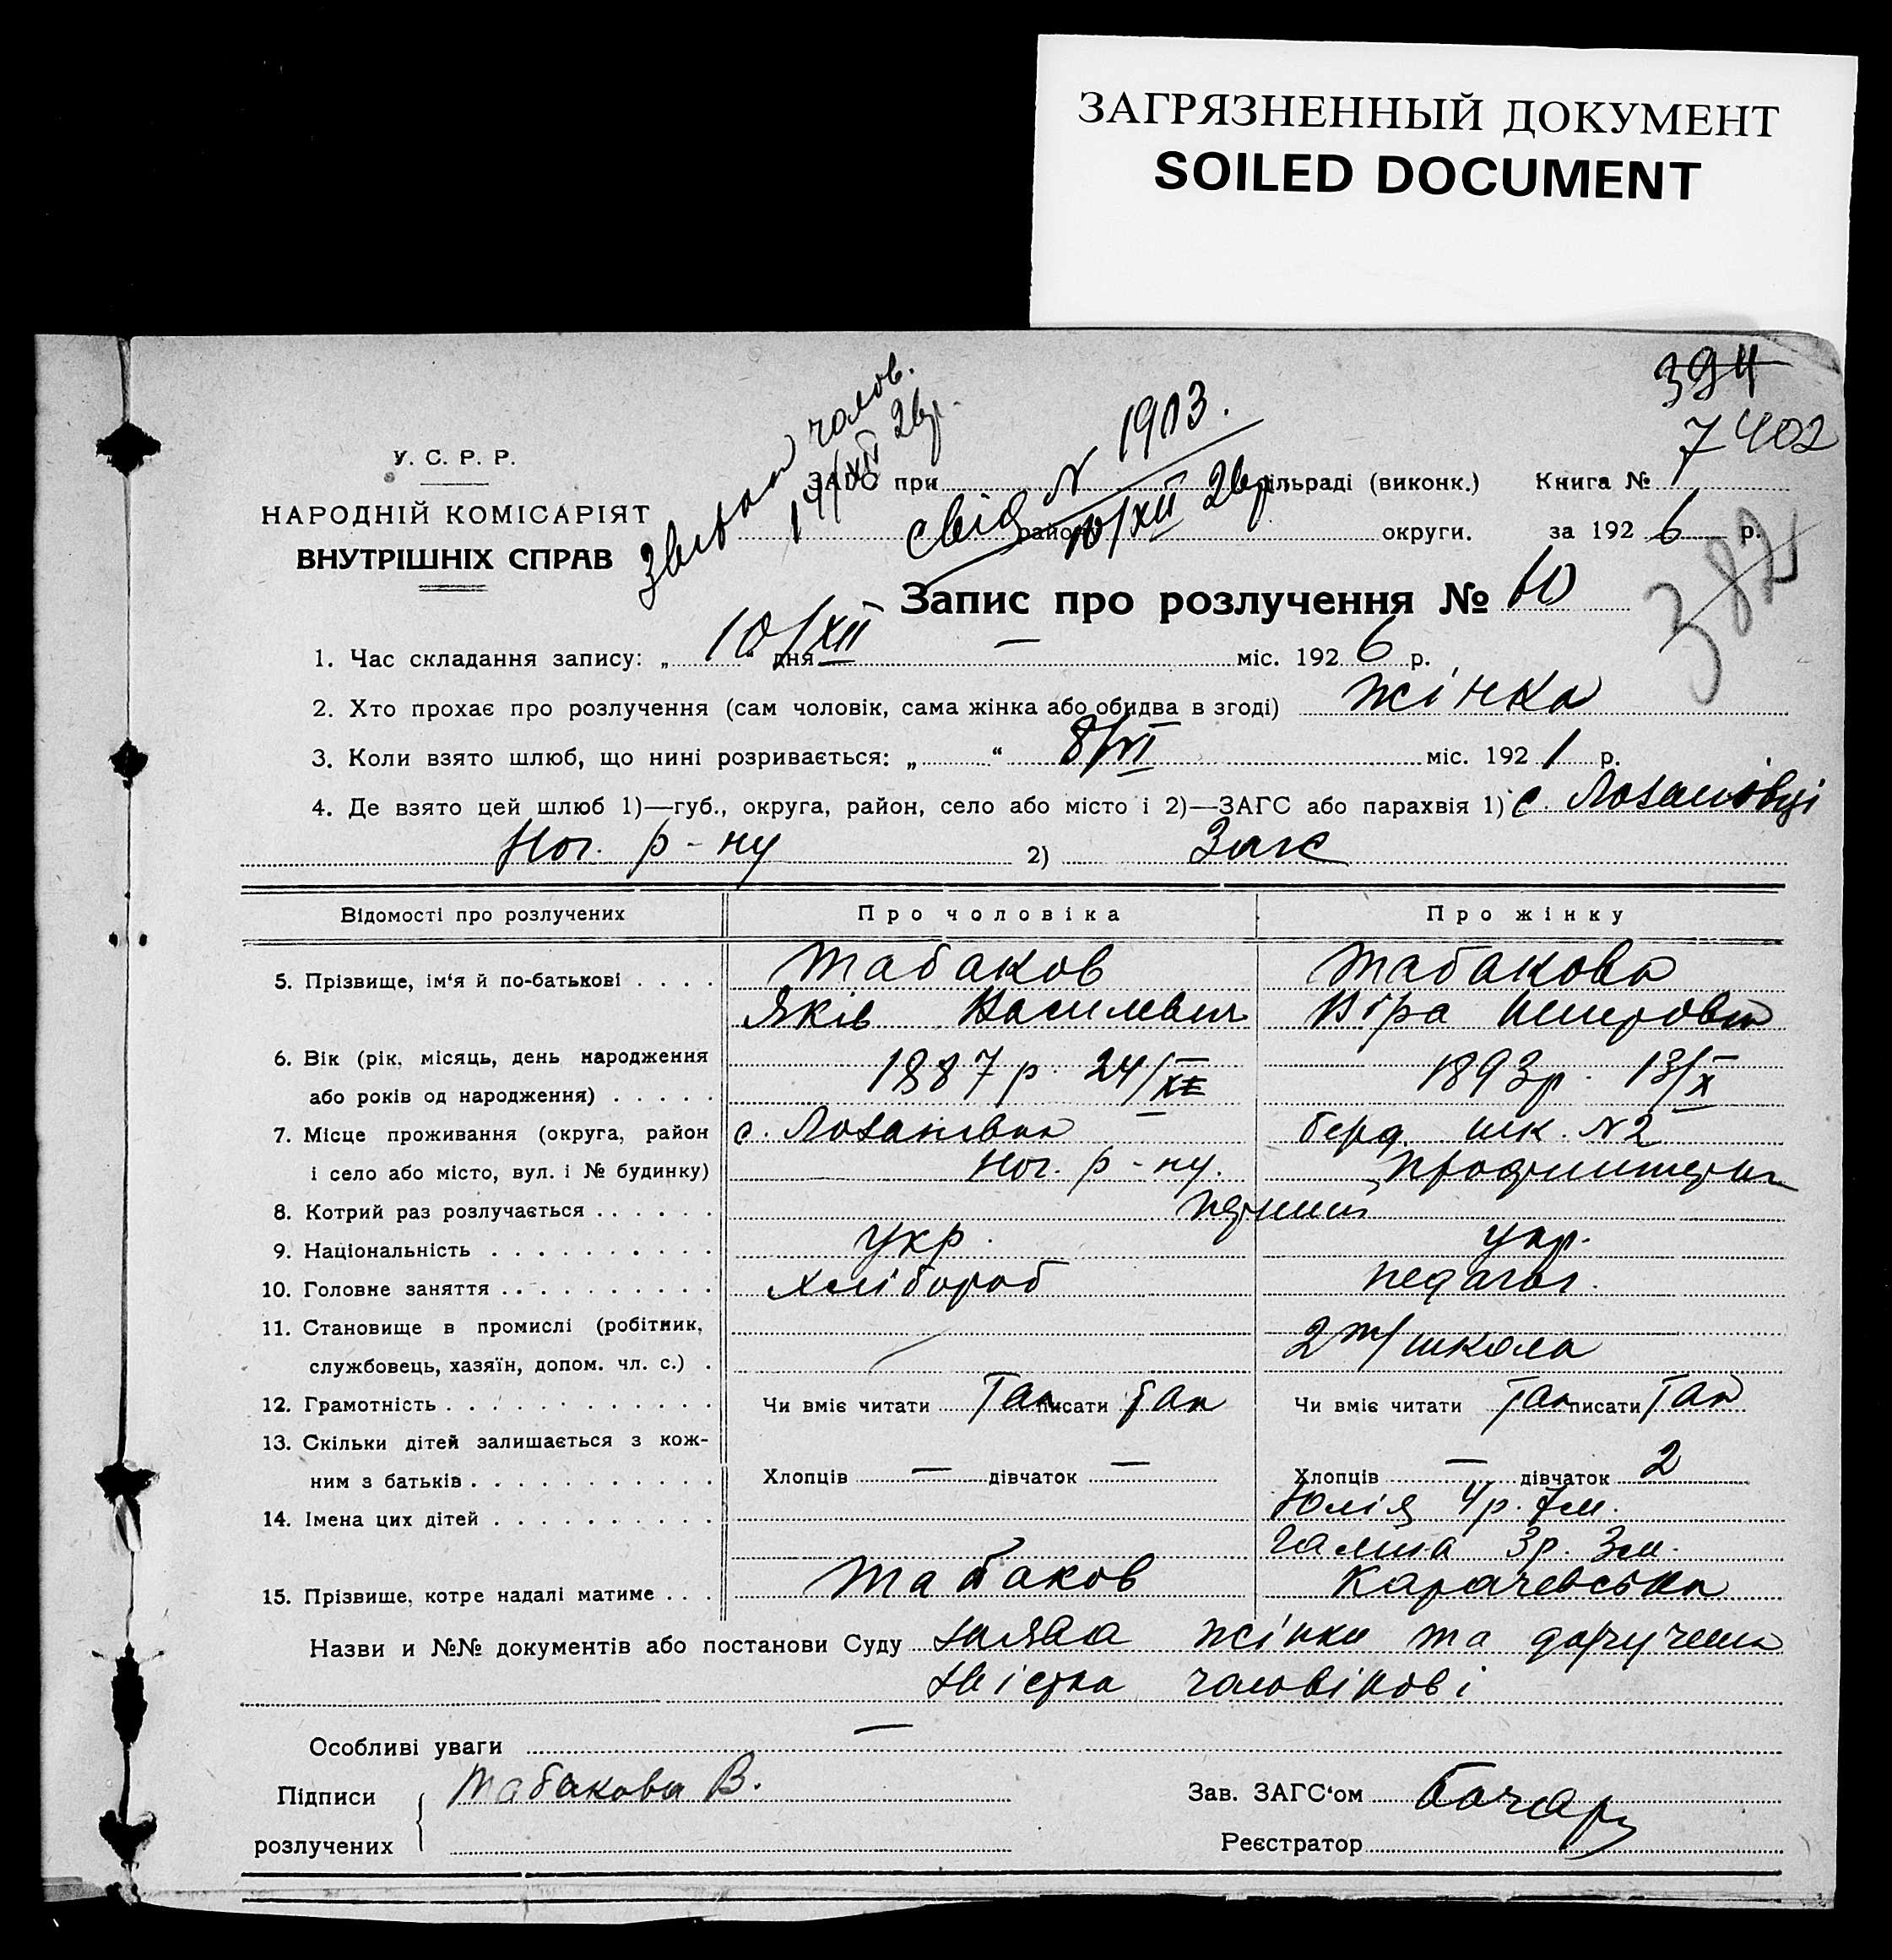 ЗАГРЯЗНЕННЫЙ ДОКУМЕНТ
SOILED DOCUMENT
394
7 402
382
У. С. Р. Р.
НАРОДНІЙ КОМІСАРІЯТ
ВНУТРІШНІХ СПРАВ
чолов.
14/XII 26р.
Свід N 1903.
10/XII 26р.
ЗАГС при сільраді (виконк.) Книга №
району округи. за 192 6 р.
Запис про розлучення № 10
1. Час складання запису: „ 10/XII “ дня — міс. 192 6 р.
2. Хто прохає про розлучення (сам чоловік, сама жінка або обидва в згоді) жінка
3. Коли взято шлюб, що нині розривається: „ “ 8/VI міс. 192 1 р.
4. Де взято цей шлюб 1)—губ., округа, район, село або місто і 2)—ЗАГС або парахвія 1) с. Лозанівці
Ног. р-ну 2) Загс
Відомості про розлучених Про чоловіка Про жінку
5. Прізвище, ім‘я й по-батькові . . . . Табаков Табакова
Яків Василевич Віра
6. Вік (рік, місяць, день народження 1887 р. 24/XI 1893р. 13/X
або років од народження) . . . . .
7. Місце проживання (округа, район с. Лозанівка берд. шк. N2
і село або місто, вул. і № будинку) Ног. р-ну.
8. Котрий раз розлучається . . . . . . перший
9. Національність . . . . . . . . . . укр. укр.
10. Головне заняття . . . . . . . . . . хлібороб педагог.
11. Становище в промислі (робітник, 2 школа
службовець, хазяїн, допом. чл. с.) .
12. Грамотність . . . . . . . . . . . . Чи вміє читати Так писати Так Чи вміє читати Так писати Так
13. Скільки дітей залишається з кож-
ним з батьків . . . . . . . . . . . Хлопців — дівчаток — Хлопців — дівчаток 2
14. Імена цих дітей . . . . . . . . . . Юлія 4р. 7м.
Галина 3р. 3м.
15. Прізвище, котре надалі матиме . . . Табаков Карачевська
Назви и №№ документів або постанови Суду заява жінки та доручена
звістка чоловікові
Особливі уваги —
Підписи Табакова В. Зав. ЗАГС‘ом Бочар
розлучених Реєстратор